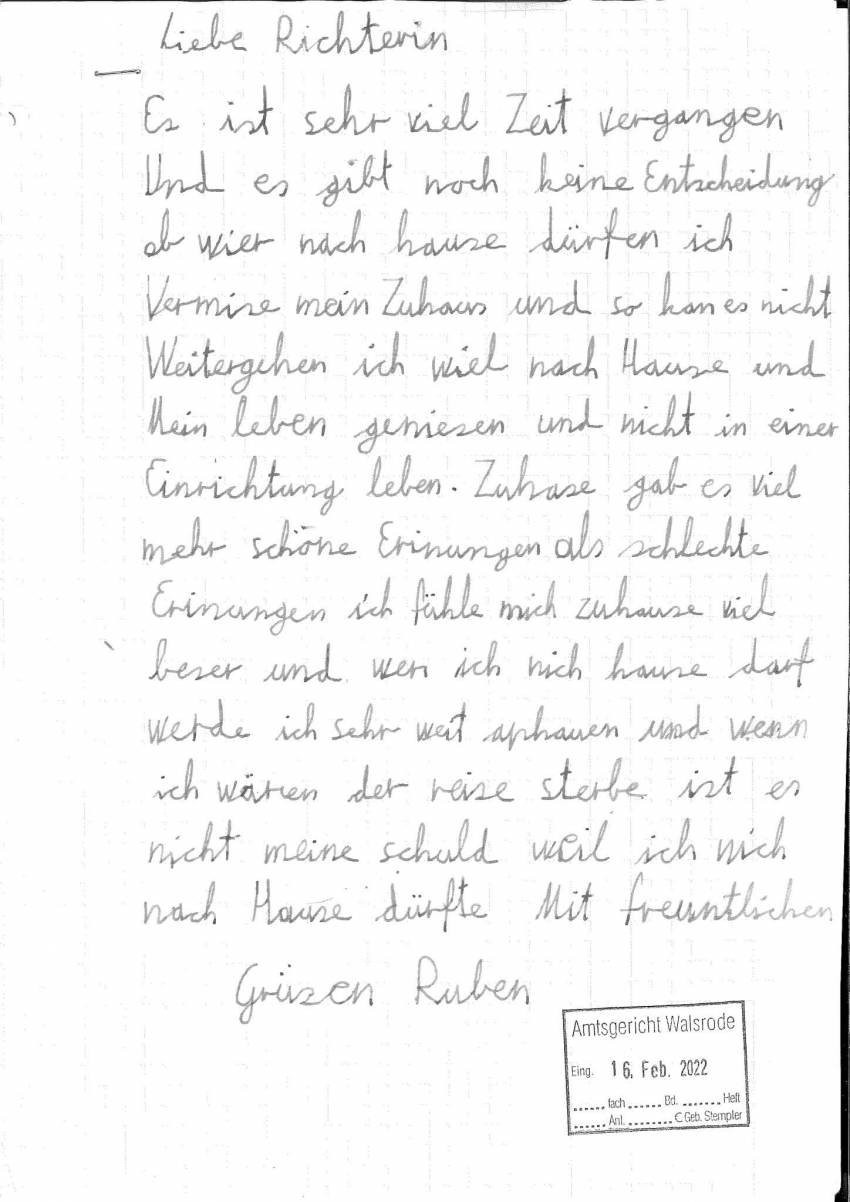 Liebe Richterin
Es ist sehr viel Zeit vergangen
Und es gibt noch keine Entscheidung
ob wier nach hause dürfen ich
Vermise mein Zuhaus und so kan es nicht
Weitergehen ich wiel nach Hause und
Mein leben geniesen und nicht in einer
Einrichtung leben. Zuhase gab es viel
mehr schöne Erinungen als schlechte
Erinungen ich fühle mich zuhause viel
beser und wen ich nich hause darf
werde ich sehr weit aphauen und wenn
ich wären der reise sterbe ist es
nicht meine schuld weil ich nich
nach Hause dürfte Mit freuntlichen
Grüsen Ruben
Amtsgericht Walsrode
Eing. 16. Feb. 2022
......fach ...... Bd. ....... Heft
...... Anl. ........ € Geb. Stempler